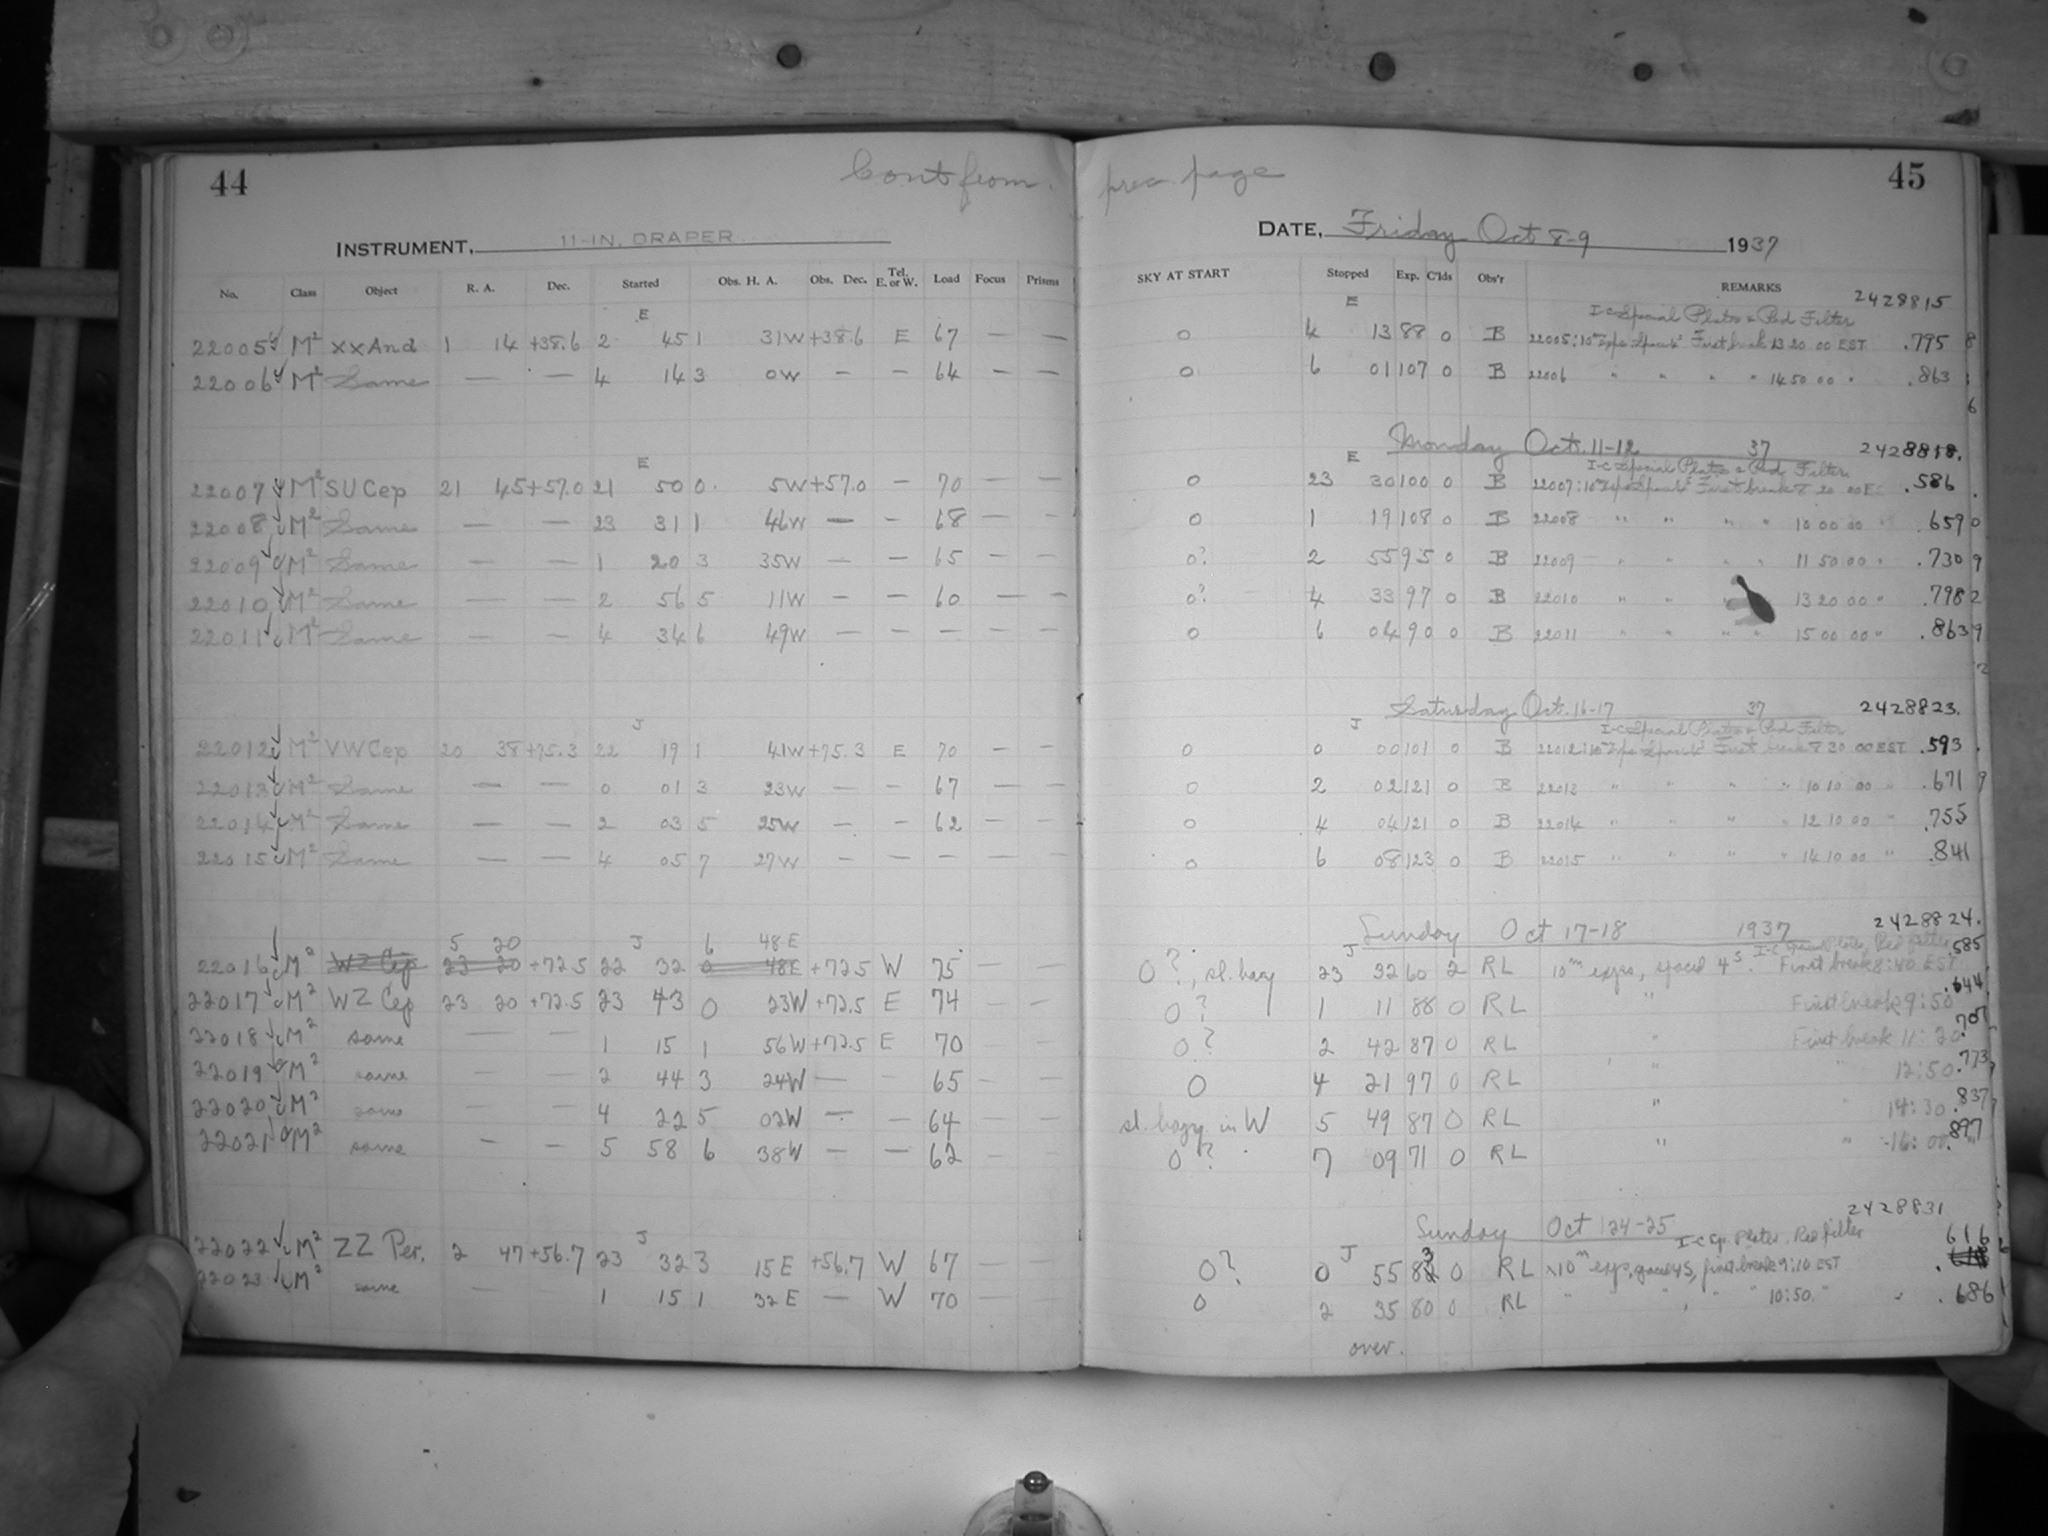 44
Cont from prec. page
45
INSTRUMENT, 11-IN. DRAPER
DATE, Friday Oct 8-9 1937
No. Class Object R. A. Dec. Started Obs. H. A. Obs. Dec. Tel. E. or W. Load Focus Prisms SKY AT START Stopped Exp. C'lds Obs'r REMARKS 2428815
E E I-C Special Plates & Red Filter
22005 M² XX And 1 14 +38.6 2 45 1 31W +38.6 E 67 — — 0 4 13 88 0 B 22005: 10m Exps. First break 13 20 00 EST .795 8
22006 M² Same — — 4 14 3 0W — — 64 — — 0 6 01 107 0 B 22006 " " " " 14 50 00 " .863
6
Monday Oct. 11-12 37 2428818.
E E I-C Special Plates & Red Filter
22007 M² SU Cep 21 45 +57.0 21 50 0 5W +57.0 — 70 — — 0 23 30 100 0 B 22007: 10m Exps First break 8 20 00 E .586
22008 M² Same — — 23 31 1 46W — — 68 — — 0 1 19 108 0 B 22008 " " " " 10 00 00 " .659 0
22009 M² Same — — 1 20 3 35W — — 65 — — 0? 2 55 95 0 B 22009 " " " " 11 50 00 " .730 9
22010 M² Same — — 2 56 5 11W — — 60 — — 0? 4 33 97 0 B 22010 " " " 13 20 00 " .798 2
22011 M² Same — — 4 34 6 49W — — — — — 0 6 04 90 0 B 22011 " " " " 15 00 00 " .863 9
2
Saturday Oct. 16-17 37 2428823.
J J I-C Special Plates & Red Filter
22012 M² VW Cep 20 38 +75.3 22 19 1 41W +75.3 E 70 — — 0 0 00 101 0 B 22012: 10m Exps First break 8 30 00 EST .593
22013 M² Same — — 0 01 3 23W — — 67 — — 0 2 02 121 0 B 22013 " " " " 10 10 00 " .671 9
22014 M² Same — — 2 03 5 25W — — 62 — — 0 4 04 121 0 B 22014 " " " " 12 10 00 " .755
22015 M² Same — — 4 05 7 27W — — — — — 0 6 08 123 0 B 22015 " " " " 14 10 00 " .841
Sunday Oct 17-18 1937 2428824.
5 20 J 6 48E J I-C Spec. Plates, Red filter .585
22016 M² WZ Cep 23 20 +72.5 22 32 0 48E +72.5 W 75 0?, sl. hazy 23 32 60 2 RL 10m exps, spaced 4s. First break 8:40 EST
22017 M² WZ Cep 23 20 +72.5 23 43 0 23W +72.5 E 74 — — 0? 1 11 88 0 RL " First break 9:50 .644
22018 M² same — — 1 15 1 56W +72.5 E 70 — — 0? 2 42 87 0 RL " First break 11:20 .707
22019 M² same — — 2 44 3 24W — 65 — — 0 4 21 97 0 RL " " 12:50 .773
22020 M² same — — 4 22 5 02W — — 64 — — sl. hazy in W 5 49 87 0 RL " " 14:30 .837
22021 M² same — — 5 58 6 38W — — 62 — — 0? 7 09 71 0 RL " " 16:00 .897
Sunday Oct 24-25 2428831
J J I-C Sp. Plates, Red filter 616
22022 M² ZZ Per. 2 47 +56.7 23 32 3 15E +56.7 W 67 — — 0? 0 55 83 0 RL x10m exps, spaced 4s, first break 9:10 EST
22023 M² same — — 1 15 1 32E — W 70 — — 0 2 35 80 0 RL " " " " 10:50 " " .686
over.